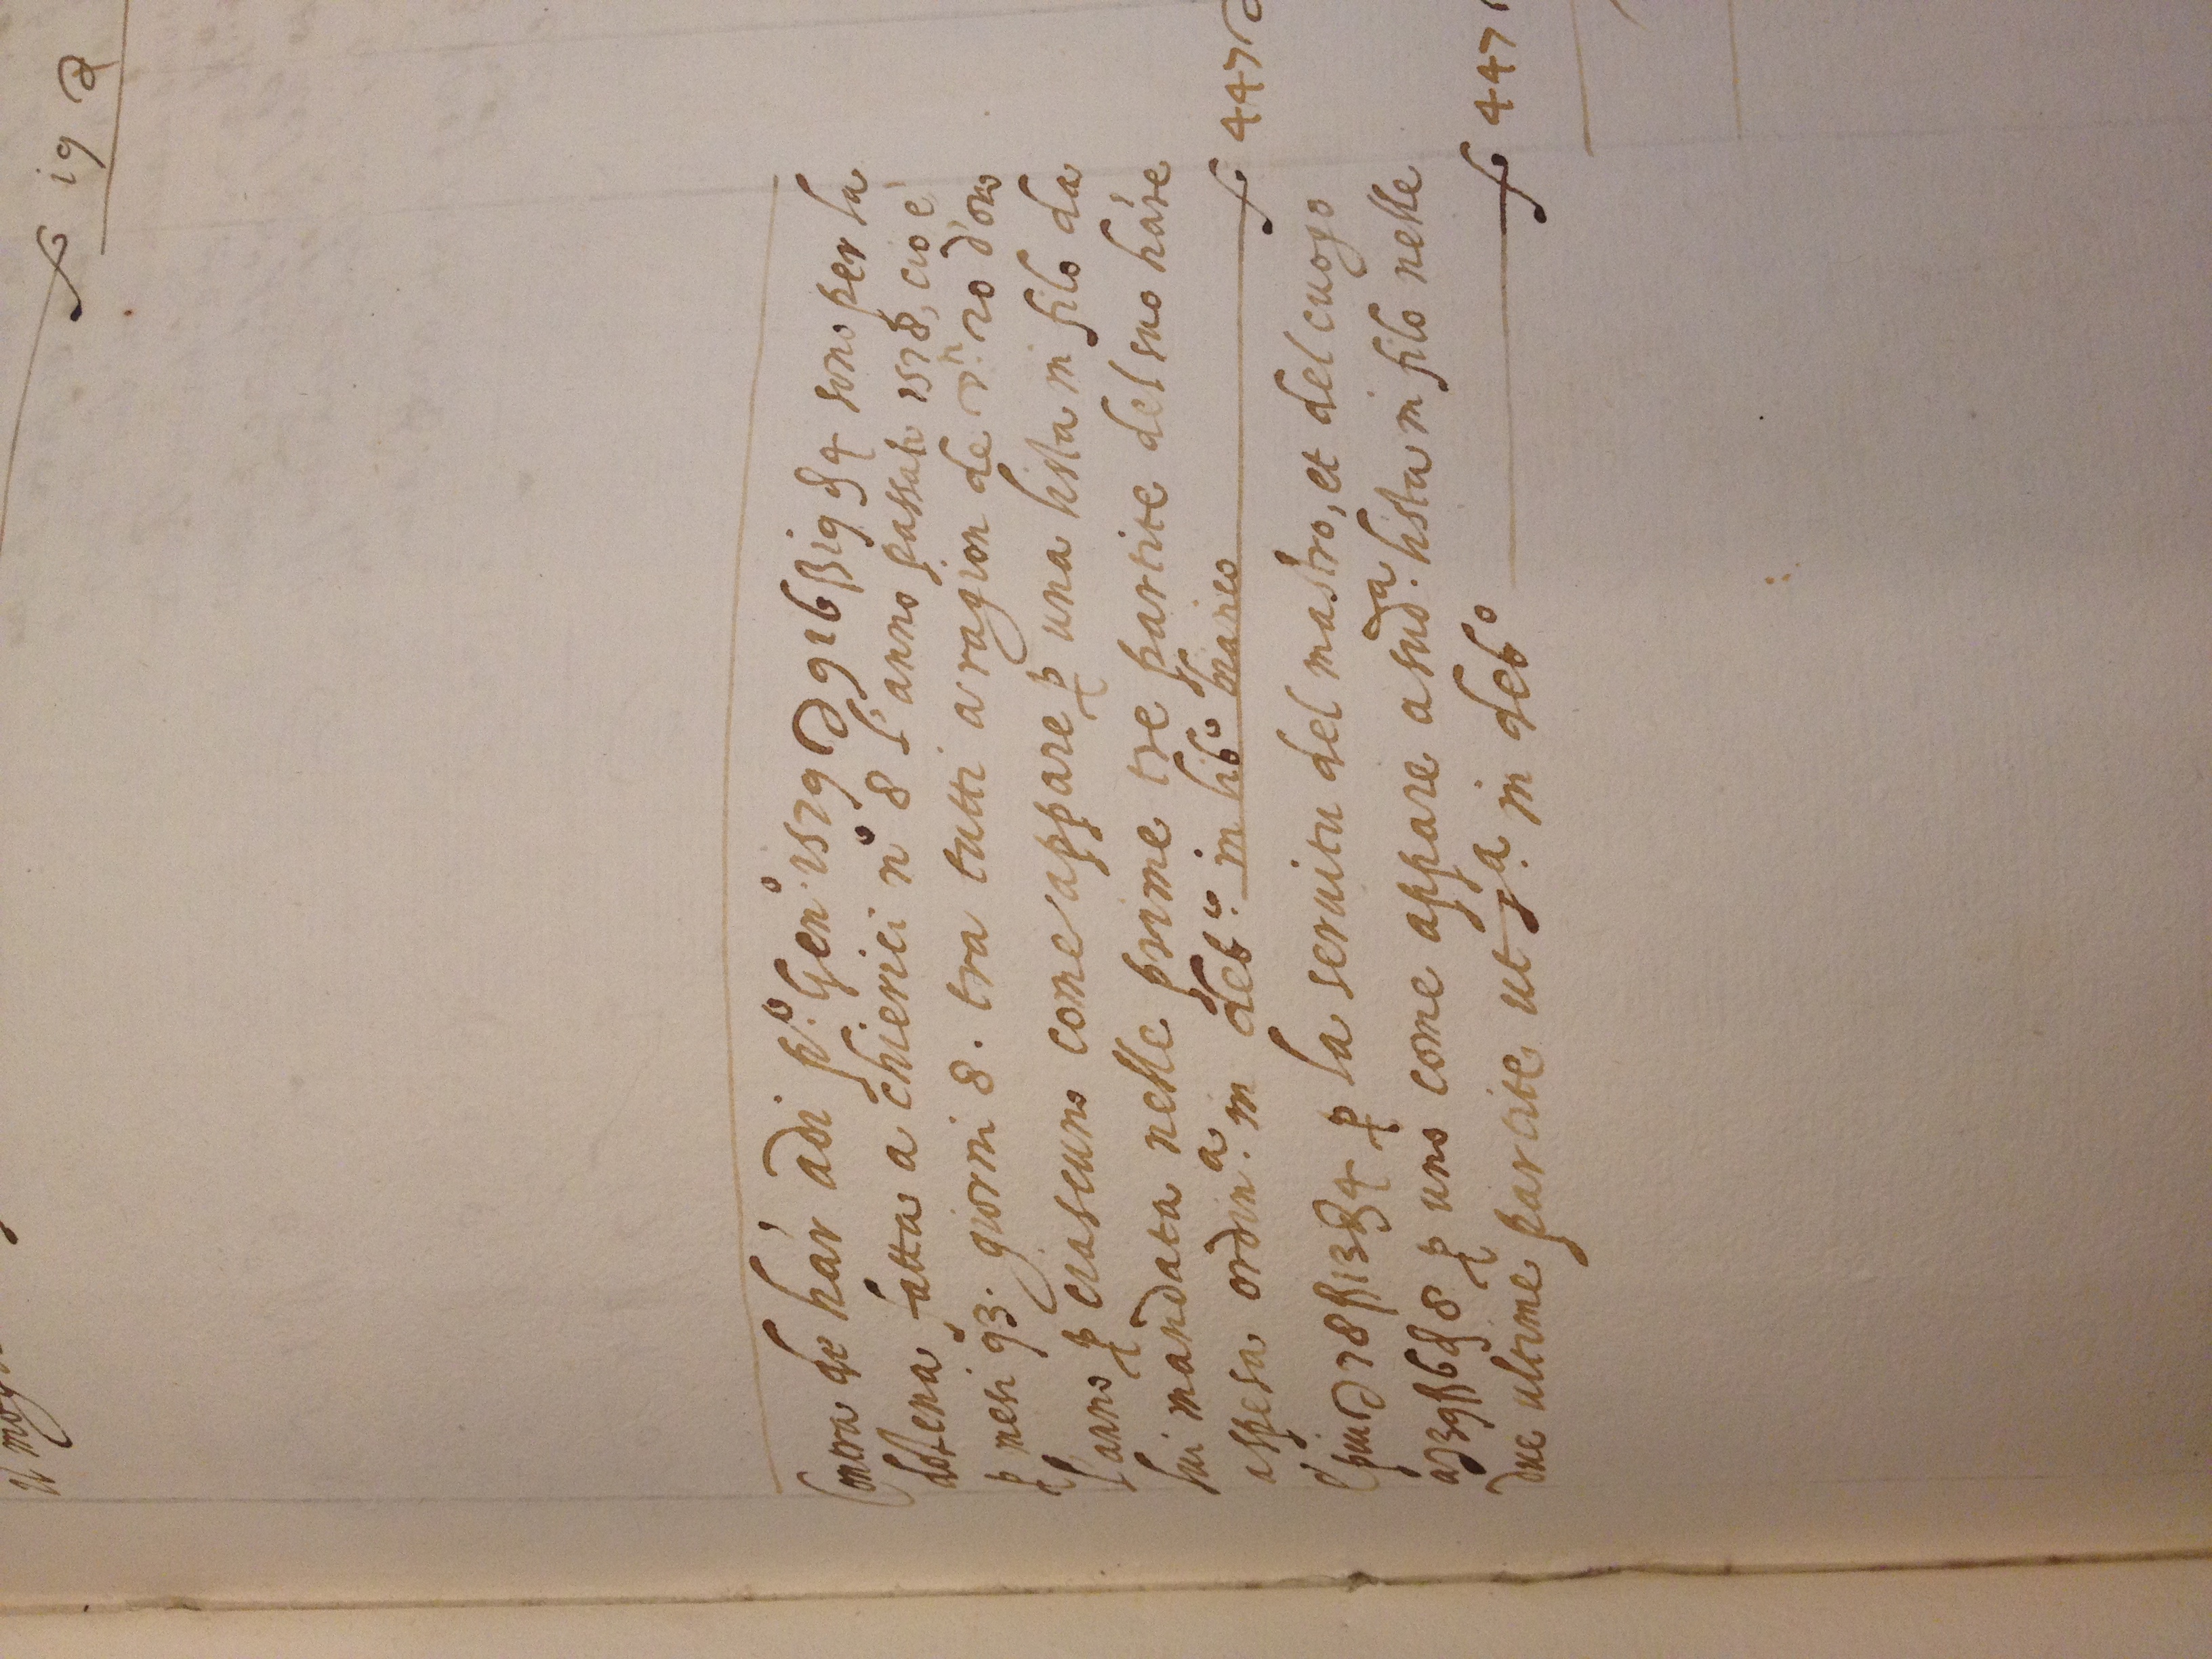 fo 19 ∂
Contra de' hár adi p.º Gen.º 1579 ∂ 9 16 ß 19 ₰ 4 sono per la
dozena fatta a chierici nº 8 l'anno passato 1578, cioè
ꝑ mesi 93. giorni 8. tra tutti a ragion de 20 d'oro
l'anno ꝑ ciascuno come appare ꝑ una lista in filo da
lui mandata nelle prime tre partite del suo háre
a spesa ordin.ª in deb.º in lib.º
fo 447
E piu ∂ 78 ß 13 ₰ 4 ꝑ la seruitu del mastro, et del cuogo
a ∂ 39 ß 6 ₰ 8 ꝑ uno come appare a sud.ª lista in filo nelle
due ultime partite ut s.ª in deb.º
fo 447